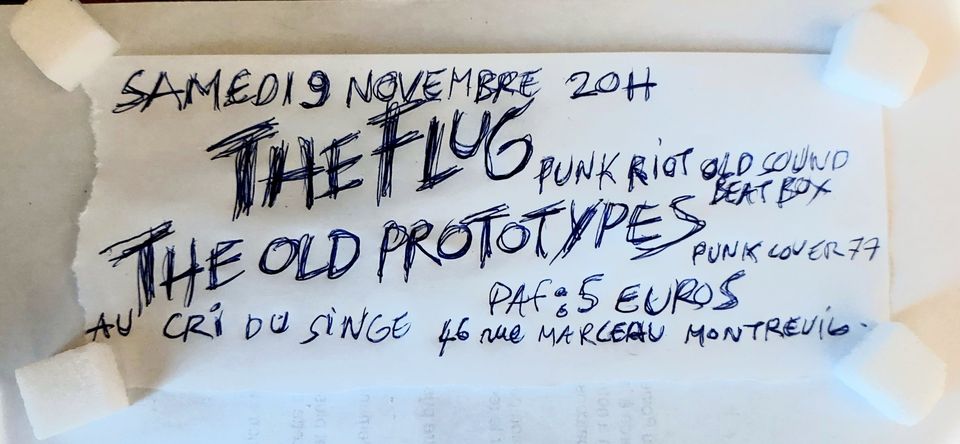 SAMEDI 9 NOVEMBRE 20H
THE FLUG PUNK RIOT OLD SOUND
BEAT BOX
THE OLD PROTOTYPES PUNK COVER 77
PAF: 5 EUROS
AU CRI DU SINGE 46 rue MARCEAU MONTREUIL.